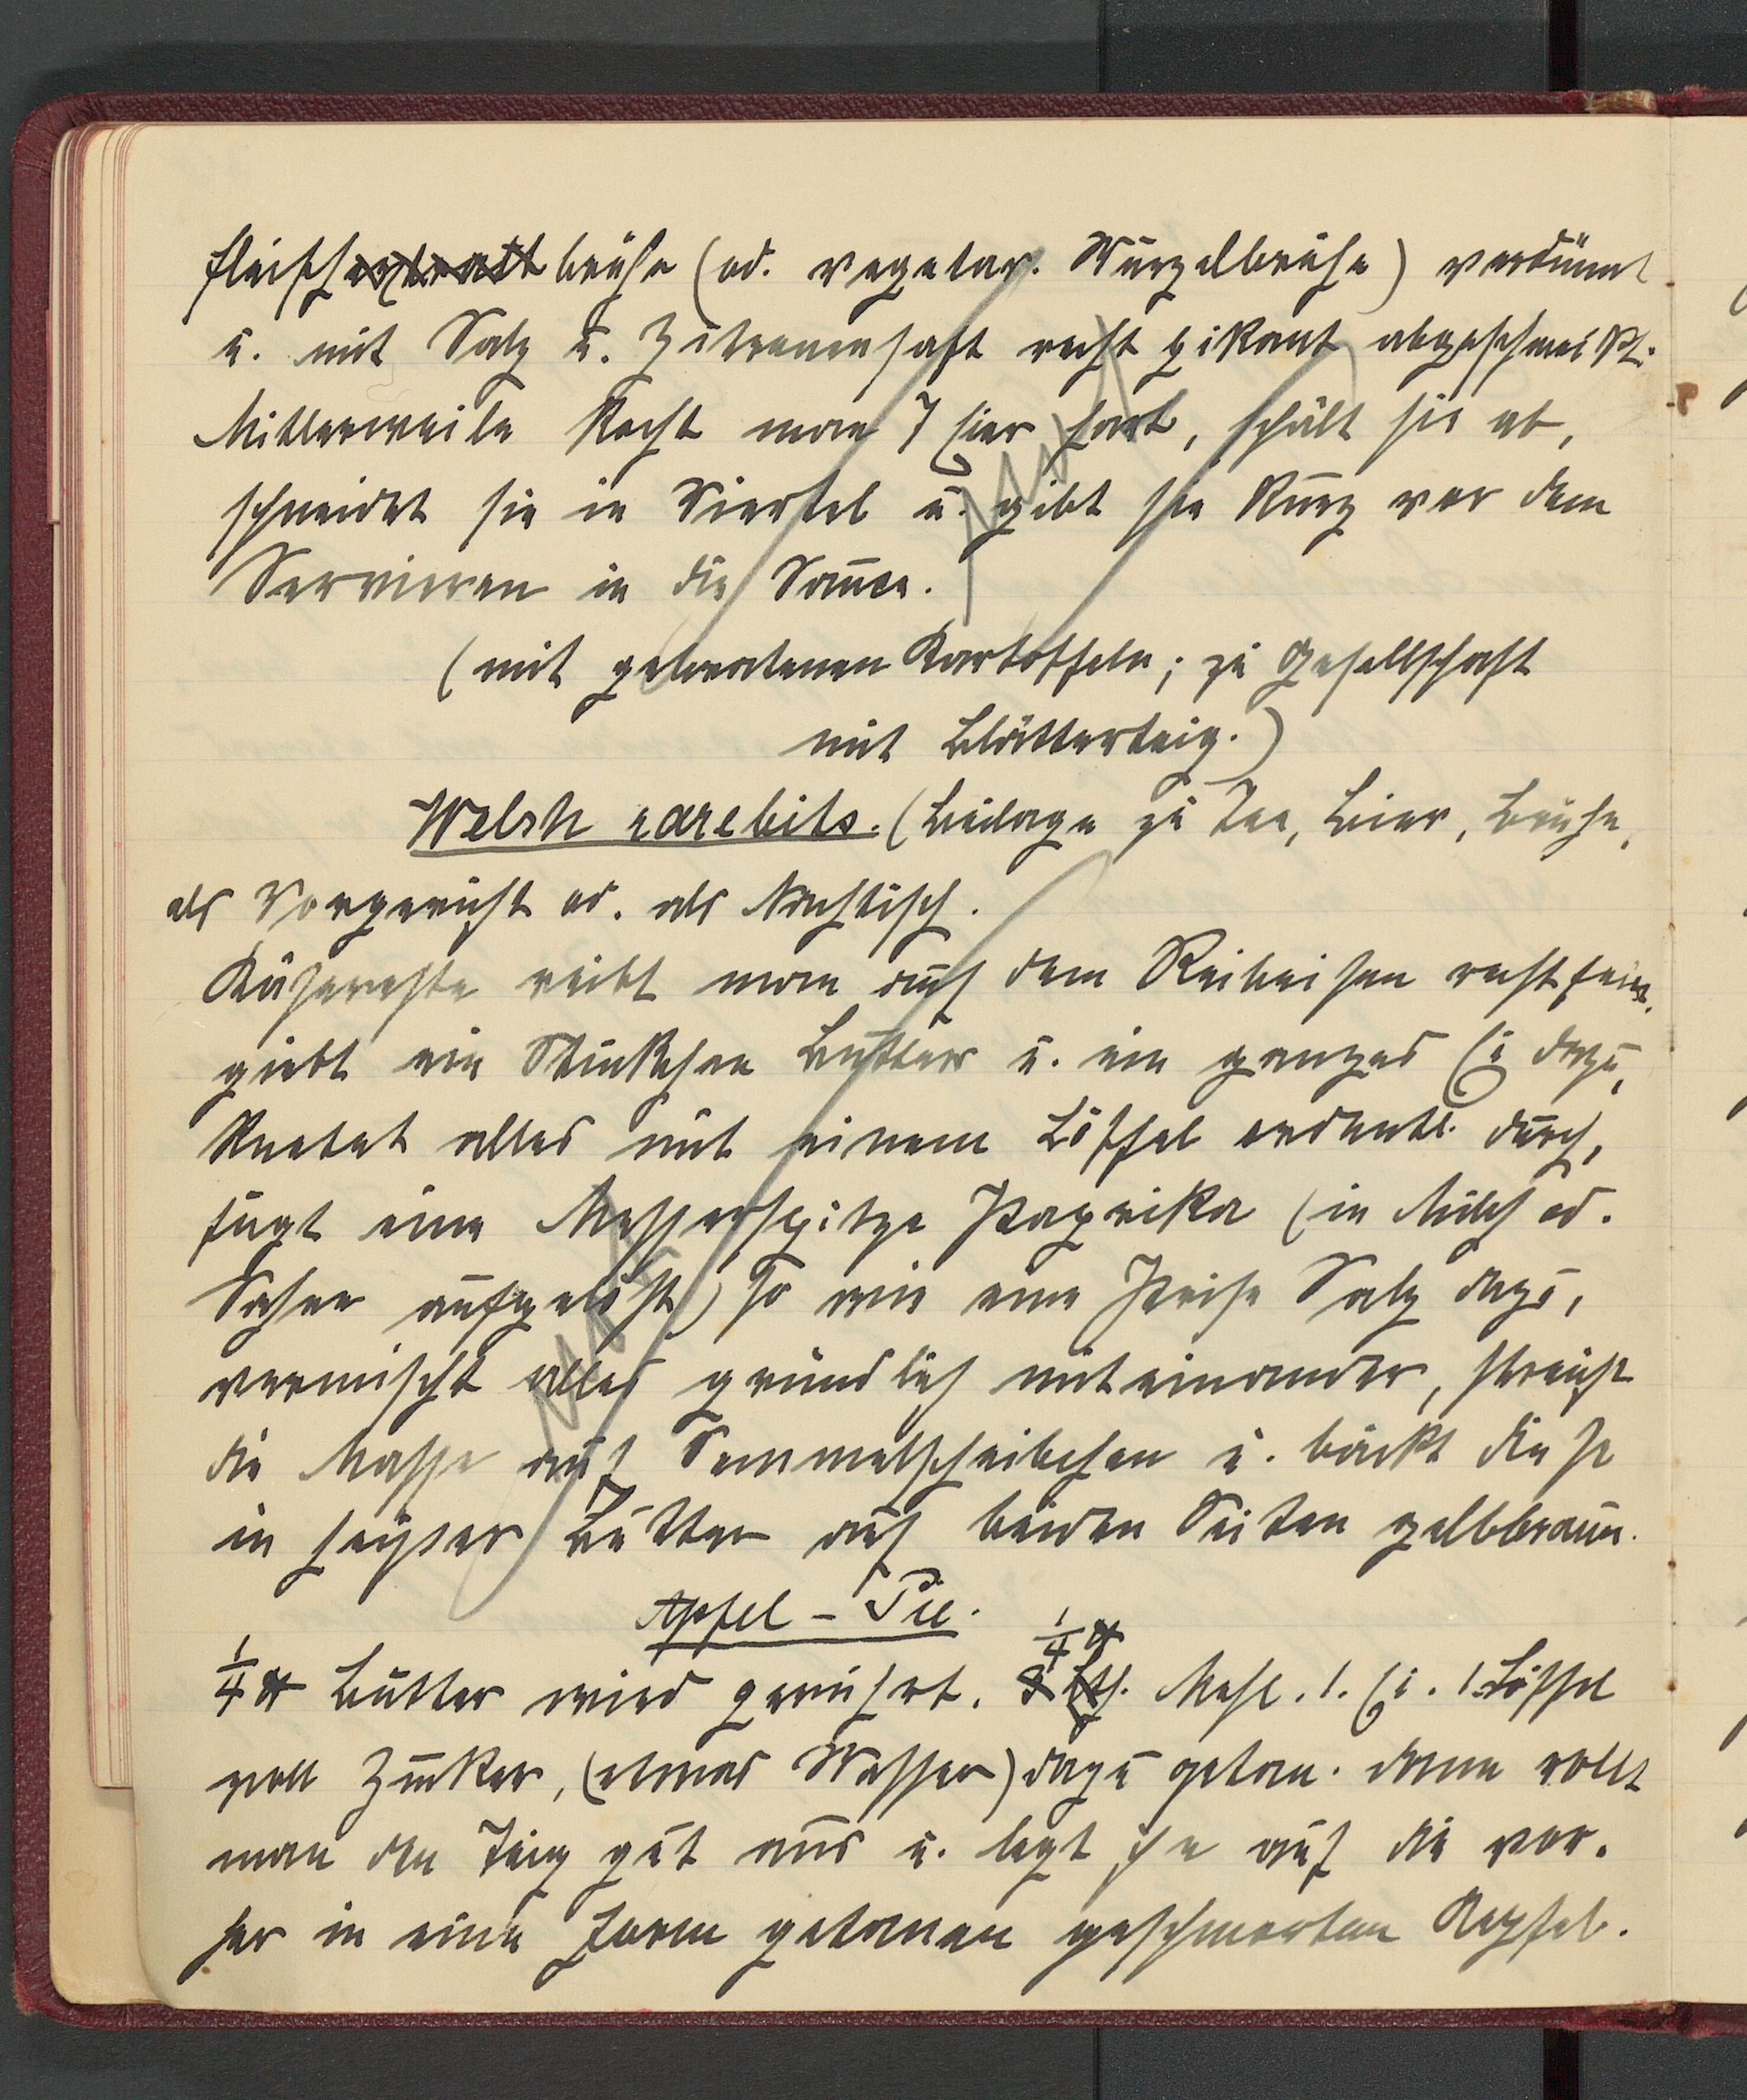 Fleischextraktbrühe (od. vegetar. Wurzelbrühe) verdünnt
u. mit Salz u. Zitronensaft recht pikant abgeschmeckt.
Mittlerweile kocht man 7 Eier hart, schält sie ab,
schneidet sie in Viertel u. gibt sie kurz vor dem
Servieren in die Sauce.
(mit gebratenen Kartoffeln; zu Gesellschaft
mit Blätterteig.)
Welsh rarebits. (Beilage zu Tee, Bier, Brühe,
als Vorgericht od. als Nachtisch.
Käsereste reibt man auf dem Reibeisen recht fein,
giebt ein Stückchen Butter u. ein ganzes Ei dazu,
knetet alles mit einem Löffel ordentl. durch,
fügt eine Messerspitze Paprika (in Milch od.
Sahne aufgelöst) so wie eine Prise Salz dazu,
vermischt alles gründlich miteinander, streicht
die Masse auf Semmelscheibchen u. bäckt diese
in heißer Butter auf beiden Seiten gelbbraun.
Apfel-Pie.
1/4 ℔
1/4 ℔ Butter wird gerührt. 8 Lth. Mehl. 1. Ei. 1 Löffel
voll Zucker, (etwas Wasser) dazu getan. dann rollt
man den Teig gut aus u. legt ihn auf die vor-
her in eine Form getanen geschmorten Aepfel.